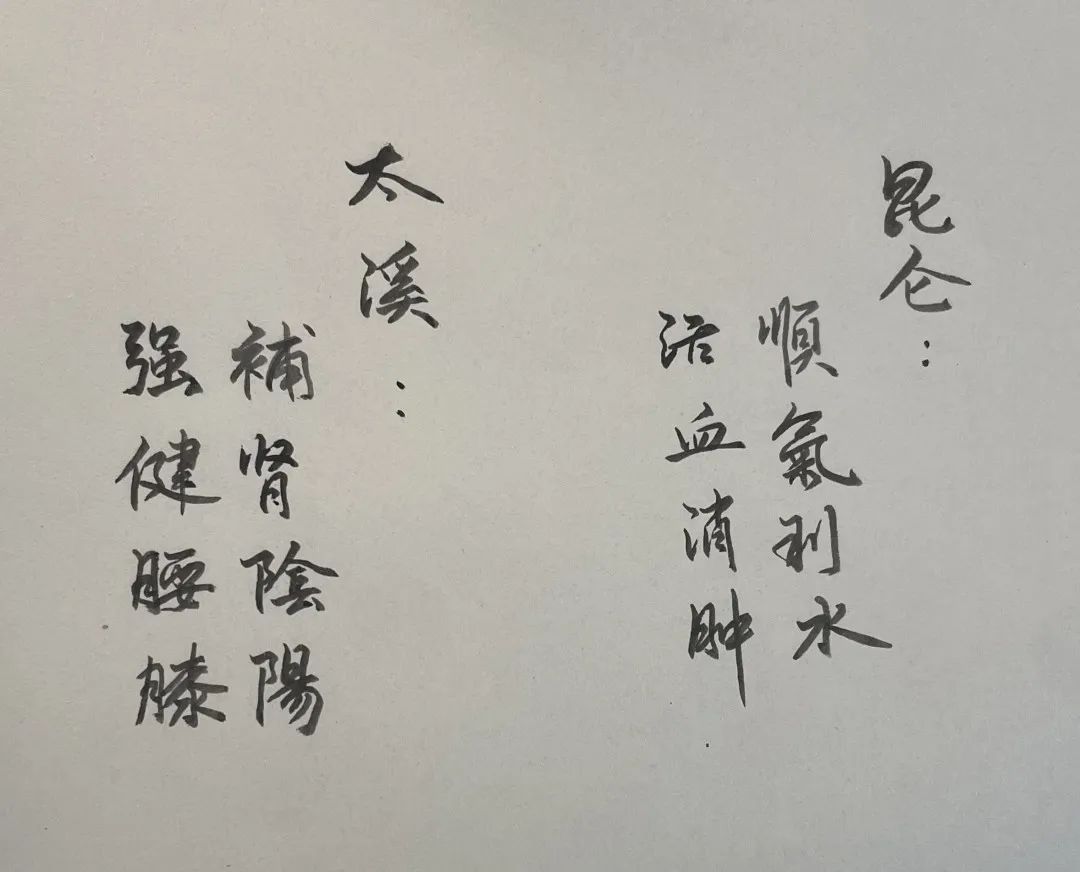 昆仑：
順氣利水
活血消肿
太溪：
補肾陰陽
强健腰膝